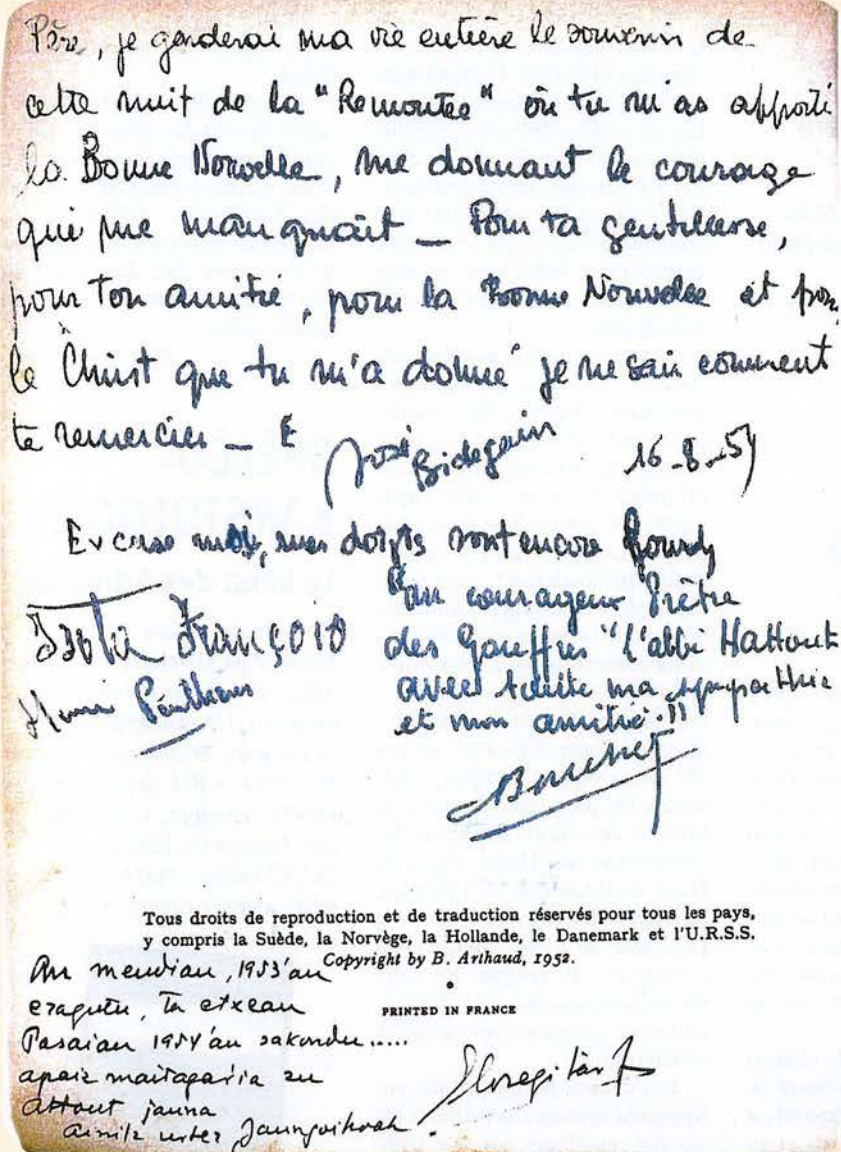 Père, je garderai ma vie entière le souvenir de
cette nuit de la "Remontée" où tu m'as apporté
la Bonne Nouvelle, me donnant le courage
qui me manquait _ Pour ta gentillesse,
pour ton amitié, pour la Bonne Nouvelle et pour
le Christ que tu m'a donné je ne sais comment
te remercier _
José Bidegain 16-8-54
Excuse moi, mes doigts sont encore gourds
François
Au courageux Prêtre
des Gouffres "l'abbé Hattout
avec toute ma sympathie
et mon amitié."
Henri
Bouchet
Tous droits de reproduction et de traduction réservés pour tous les pays,
y compris la Suède, la Norvège, la Hollande, le Danemark et l'U.R.S.S.
Copyright by B. Arthaud, 1952.
•
PRINTED IN FRANCE
An mendian, 1953'an
eragutu, ta etxean
Pasaian 1954'an sakondu.....
apaiz maitagarria zu
Attout jauna